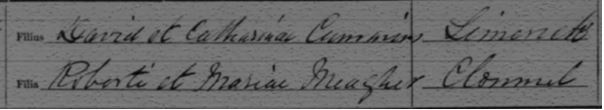 Filius David et Catharinae Cummins Limerick
Filia Roberti et Mariae Meagher Clonmel